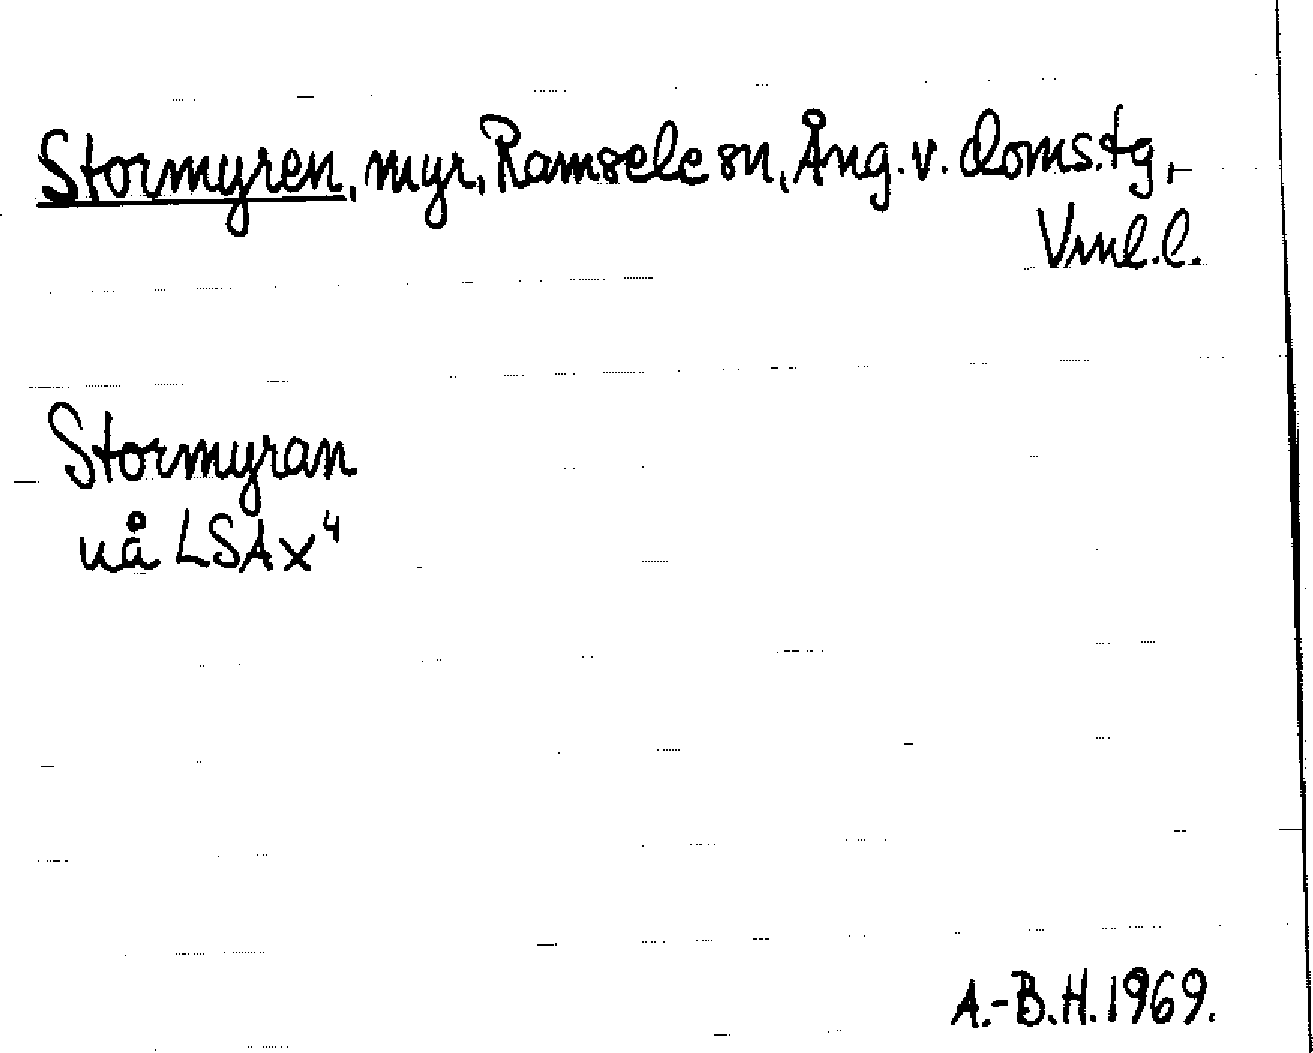 Stormyren, myr, Ramsele sn, Ång. v. doms.tg,
Vml.l.
Stormyran
uå LSA x⁴
A.-B.H. 1969.